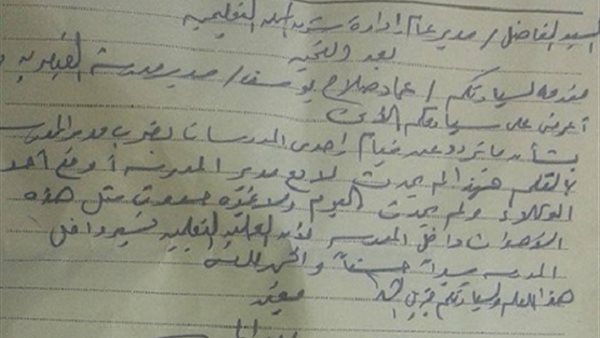 السيد الفاضل / مدير عام إدارة التعليمية
بعد التحية
مقدمه لسيادتكم / عماد صلاح يوسف / مدير مدرسة
أعرض على سيادتكم الآتى
بشأن ما تردد عن قيام إحدى المدرسات بضرب مدير المدرسة
بالقلم فهذا لم يحدث لا مع مدير المدرسة أو مع أحد
الوكلاء ولم يحدث اليوم ولا غيره حدوث مثل هذه
داخل المدرسة لأن العملية التعليمية تسير داخل
المدرسة سيراً حسناً والحمد لله
هذا للعلم ولسيادتكم جزيل الشكر